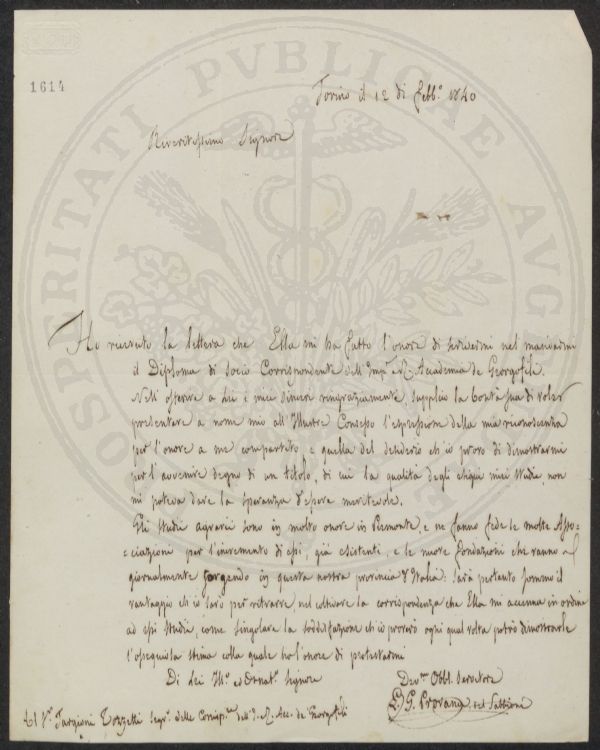 1614
PROSPERITATI PUBLICAE AUGENDAE
Torino il 12 di Febb.° 1840
Riveritissimo Signore
Ho ricevuto la lettera che Ella mi ha fatto l'onore di scrivermi nel mandarmi
il Diploma di Socio Corrispondente dell'Imp. e R. Accademia de Georgofili.
Nell'offerire a Lei i miei sinceri ringraziamenti supplico la bontà sua di voler
presentare a nome mio all'Illustre Consesso l'espressione della mia riconoscenza
per l'onore a me compartito e quella del desiderio ch'io provo di dimostrarmi
per l'avvenire degno di un titolo, di cui la qualità degli esigui miei studii non
mi poteva dare la speranza d'essere meritevole.
Gli studii agrarii sono in molto onore in Piemonte, e ne fanno fede le molte Asso-
ciazioni per l'incremento di essi, già esistenti, e le nuove fondazioni che vanno
giornalmente sorgendo in questa nostra provincia d'Italia: sarà pertanto sommo il
vantaggio ch'io sarò per ritrarre nel coltivare la corrispondenza che Ella mi accenna in ordine
ad essi studii, come singolare la soddisfazione ch'io proverò ogni qual volta potrò dimostrarle
l'ossequiosa stima colla quale ho l'onore di protestarmi
Di Lei Ill.° ed Ornat.° Signore
Dev.mo Obbl. Servitore
L. G. Provana del Sabbione
Al S.r Targioni Tozzetti Segr.° delle Corrisp.ze dell'I. R. Acc. de Georgofili